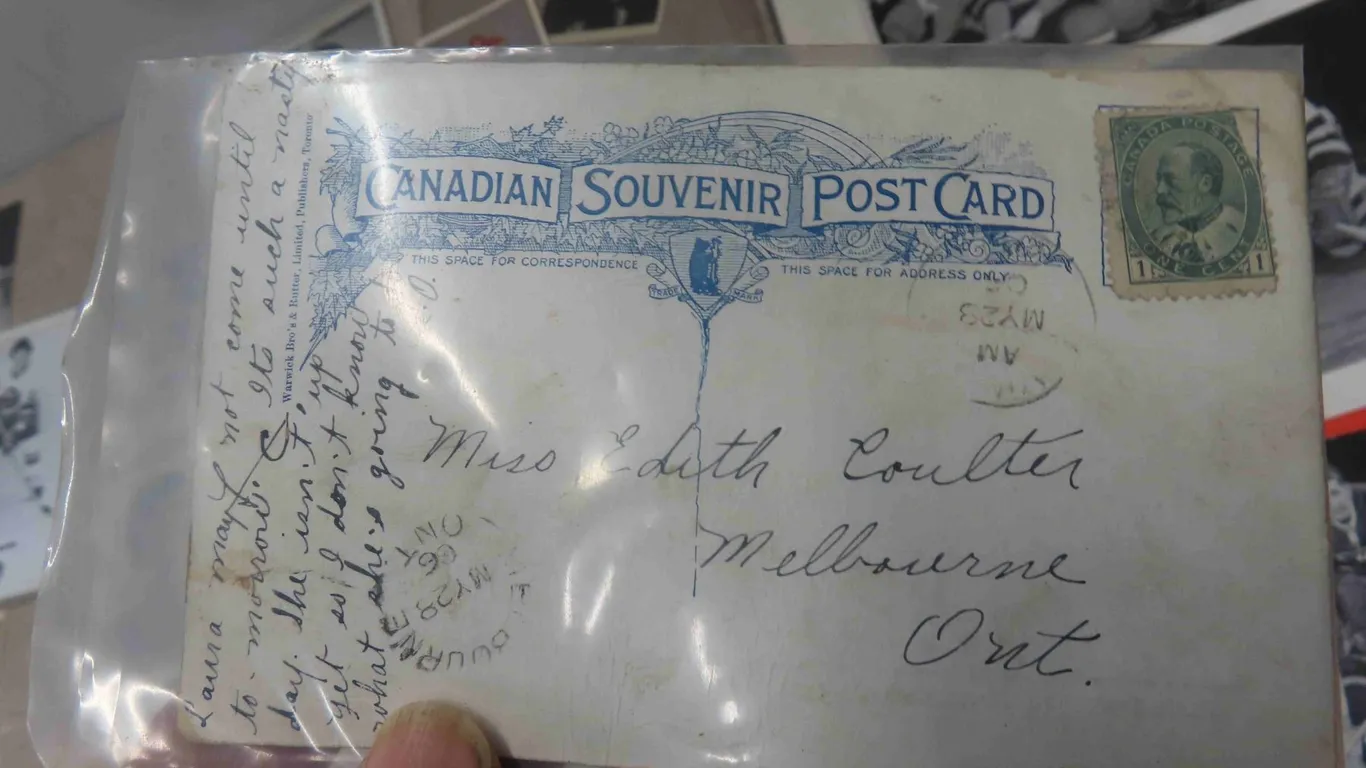 CANADIAN SOUVENIR POST CARD
THIS SPACE FOR CORRESPONDENCE
THIS SPACE FOR ADDRESS ONLY
TRADE MARK
CANADA POSTAGE
ONE CENT
1 1
AM
MY 29
Miss Edith Coulter
Melbourne
Ont.
Laura may not come until
to-morrow. Its such a nasty
day. She isn't up
yet so I don't know
what she's going to
Warwick Bro's & Rutter, Limited, Publishers, Toronto
MY 29